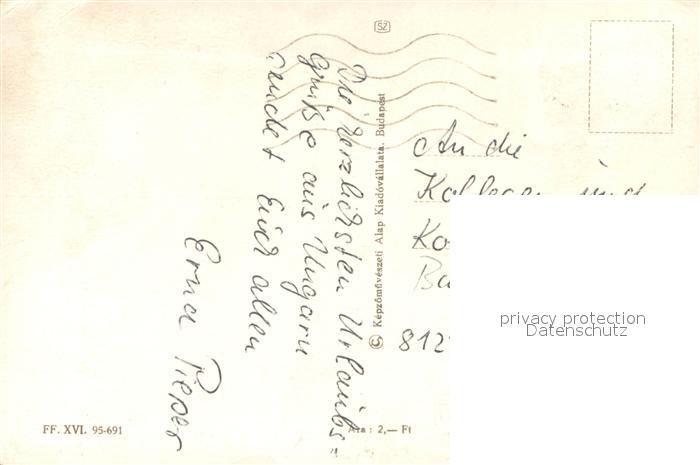 SZ
Die herzlichsten Urlaubs-
grüße aus Ungarn
sendet Euch allen
Erna
© Képzőművészeti Alap Kiadóvállalata. Budapest
An die
Kollegen und
Ko
Ba
812
privacy protection
Datenschutz
FF. XVI. 95-691
Ára : 2,— Ft